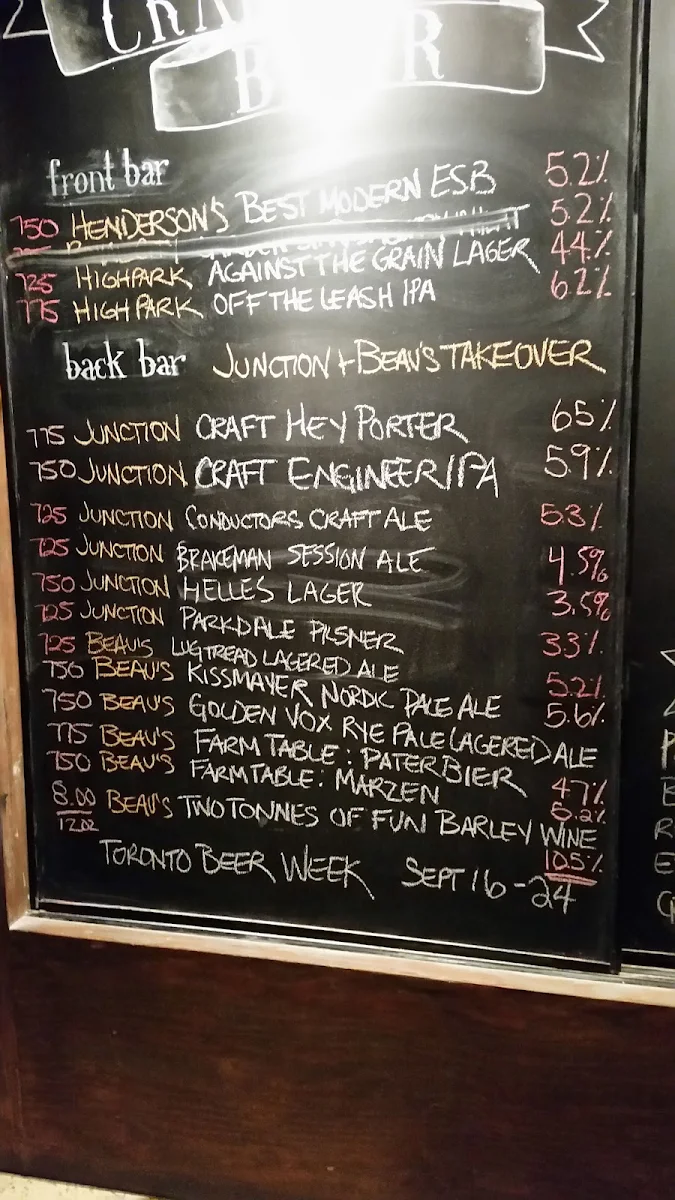 CRA
B R
front bar
750 HENDERSON'S BEST MODERN ESB 5.2%
5.2%
725 HIGHPARK AGAINST THE GRAIN LAGER 44%
775 HIGH PARK OFF THE LEASH IPA 6.2%
back bar JUNCTION + BEAU'S TAKEOVER
775 JUNCTION CRAFT HEY PORTER 65%
750 JUNCTION CRAFT ENGINEER IPA 59%
725 JUNCTION CONDUCTORS CRAFT ALE 53%
725 JUNCTION BRAKEMAN SESSION ALE 4.5%
750 JUNCTION HELLES LAGER 3.5%
725 JUNCTION PARKDALE PILSNER 33%
725 BEAU'S LUGTREAD LAGERED ALE 5.2%
750 BEAU'S KISSMAYER NORDIC PALE ALE 5.6%
750 BEAU'S GOLDEN VOX RYE PALE (LAGERED) ALE
775 BEAU'S FARM TABLE: PATER BIER 47%
750 BEAU'S FARM TABLE: MARZEN 5.2%
8.00 BEAU'S TWO TONNES OF FUN BARLEY WINE
12.OZ 10.5%
TORONTO BEER WEEK SEPT 16-24